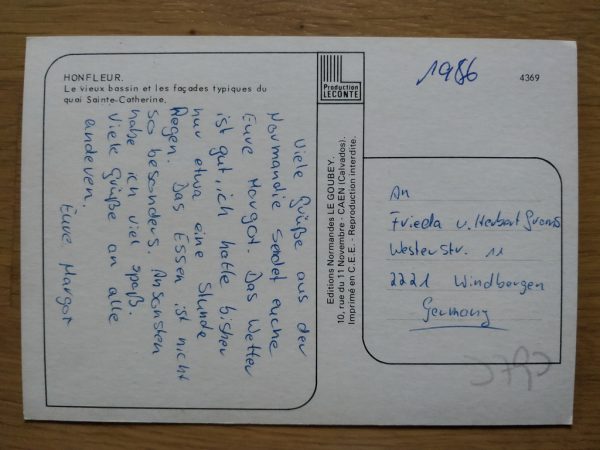 HONFLEUR.
Le vieux bassin et les façades typiques du
quai Sainte-Catherine.
Viele Grüße aus der
Normandie sendet euche
Eure Margot. Das Wetter
ist gut, ich hatte bisher
nur etwa eine Stunde
Regen. Das Essen ist nicht
so besonders. Ansonsten
habe ich viel Spaß.
Viele Grüße an alle
anderen,
Eure Margot
Production
LECONTE
Editions Normandes LE GOUBEY.
10, rue du 11 Novembre - CAEN (Calvados).
Imprimé en C.E.E. - Reproduction interdite.
1986
4369
An
Frieda u. Herbert
Westerstr. 11
2221 Windbergen
Germany